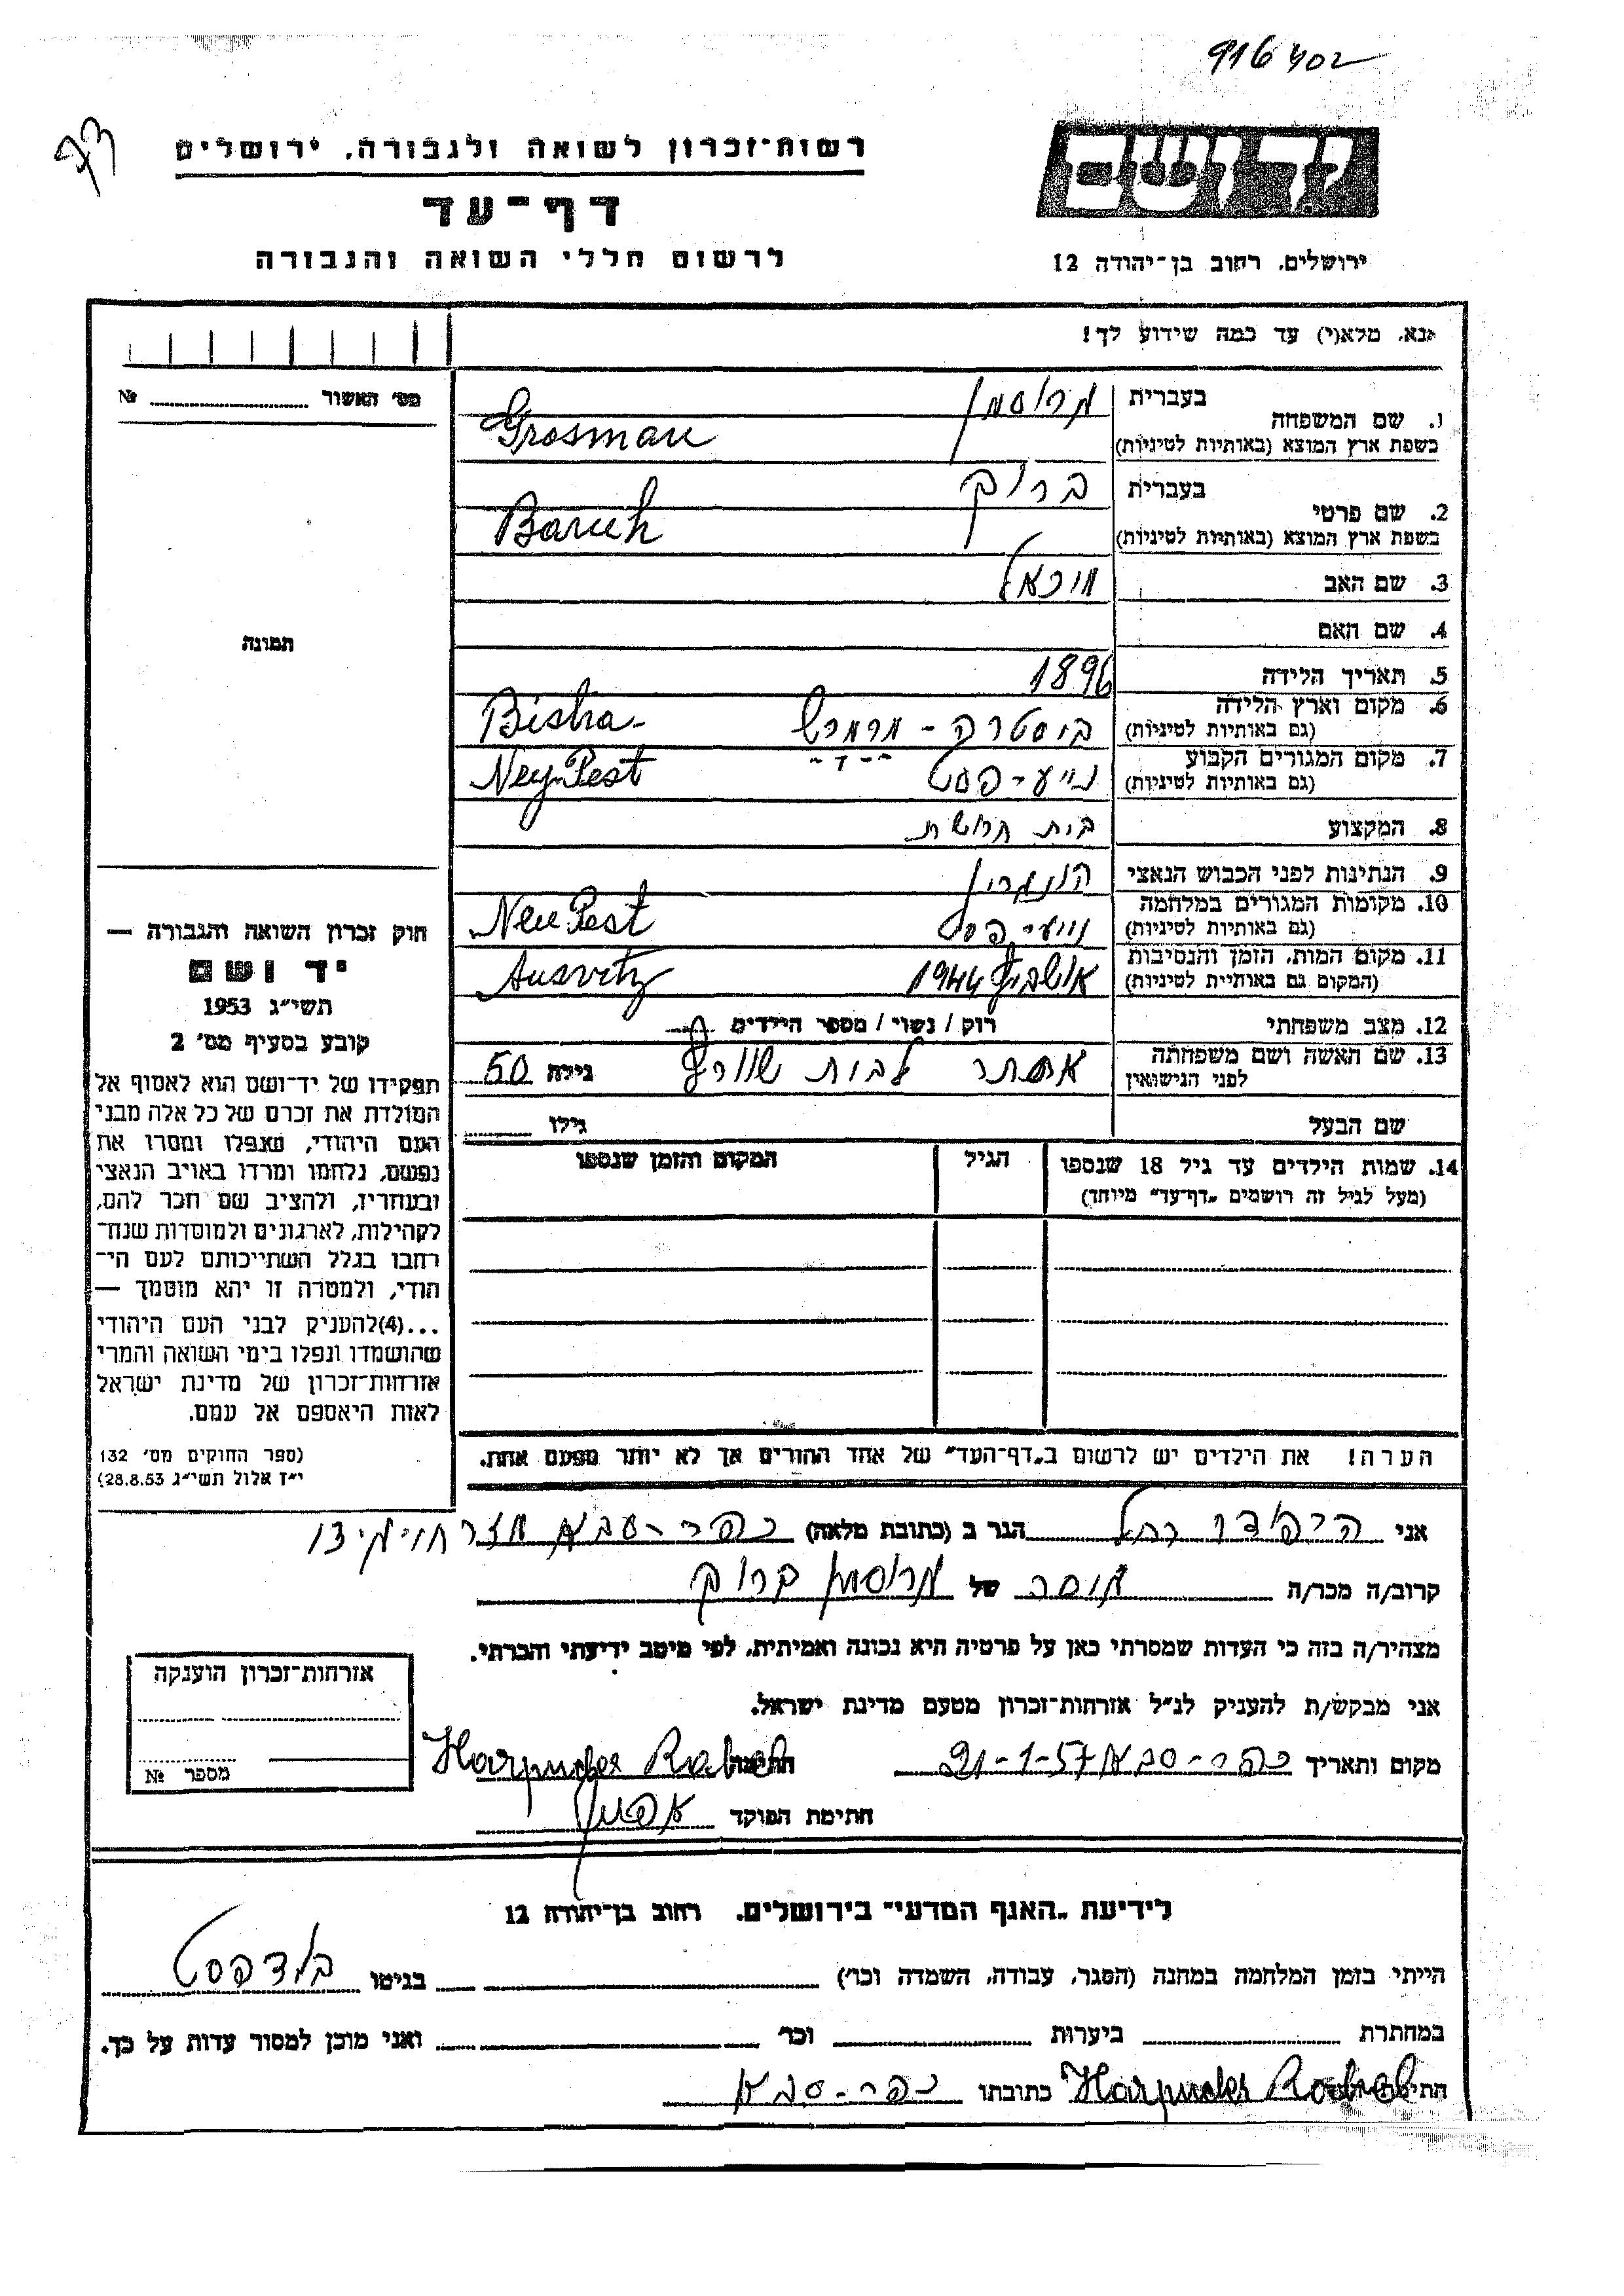 916402
רשות־זכרון לשואה ולגבורה, ירושלים
דף־עד
לרשום חללי השואה והגבורה
יד ושם
ירושלים, רחוב בן־יהודה 12
נא, מלא(י) עד כמה שידוע לך!
מס׳ האשור № 
1. שם המשפחה בעברית גרוסמן
בשפת ארץ המוצא (באותיות לטיניות) Grosman
2. שם פרטי בעברית ברוך
בשפת ארץ המוצא (באותיות לטיניות) Baruch
3. שם האב מיכאל
4. שם האם
5. תאריך הלידה 1896
6. מקום וארץ הלידה (גם באותיות לטיניות) ביסטרה - מרמרש Bistra-
7. מקום המגורים הקבוע (גם באותיות לטיניות) נייע-פסט Ney-Pest
8. המקצוע בית חרושת
9. הנתינות לפני הכבוש הנאצי הונגרית
10. מקומות המגורים במלחמה (גם באותיות לטיניות) נויעי-פסט Neu Pest
11. מקום המות, הזמן והנסיבות (המקום גם באותיות לטיניות) אושביץ 1944 Ausvitz
12. מצב משפחתי רוק / נשוי / מספר הילדים
13. שם האשה ושם משפחתה לפני הנישואין אסתר לבית שוורץ גילה 50
שם הבעל גילו
14. שמות הילדים עד גיל 18 שנספו
(מעל לגיל זה רושמים „דף־עד״ מיוחד)
הגיל
המקום והזמן שנספו
הערה! את הילדים יש לרשום ב„דף־העד״ של אחד ההורים אך לא יותר מפעם אחת.
תמונה
חוק זכרון השואה והגבורה —
יד ושם
תשי״ג 1953
קובע בסעיף מס׳ 2
תפקידו של יד־ושם הוא לאסוף אל
המולדת את זכרם של כל אלה מבני
העם היהודי, שנפלו ומסרו את
נפשם, נלחמו ומרדו באויב הנאצי
ובעוזריו, ולהציב שם וזכר להם,
לקהילות, לארגונים ולמוסדות שנח־
רבו בגלל השתייכותם לעם הי־
הודי, ולמטרה זו יהא מוסמך —
...(4) להעניק לבני העם היהודי
שהושמדו ונפלו בימי השואה והמרי
אזרחות־זכרון של מדינת ישראל
לאות היאספם אל עמם.
(ספר החוקים מס׳ 132
י״ז אלול תשי״ג 28.8.53)
אני רחל הגר ב (כתובת מלאה) כפר-סבא
קרוב/ה מכר/ה של גרוסמן ברוך
מצהיר/ה בזה כי העדות שמסרתי כאן על פרטיה היא נכונה ואמיתית, לפי מיטב ידיעתי והכרתי.
אני מבקש/ת להעניק לנ״ל אזרחות־זכרון מטעם מדינת ישראל.
מקום ותאריך כפר-סבא 21-1-57 חתימה Harpuder Rahel
חתימת הפוקד
אזרחות־זכרון הוענקה
מספר №
לידיעת „האגף המדעי״ בירושלים, רחוב בן־יהודה 12
הייתי בזמן המלחמה במחנה (הסגר, עבודה, השמדה וכו׳) בגיטו בודפסט
במחתרת ביערות וכו׳ ואני מוכן למסור עדות על כך.
Harpuder Rahel כתובתו כפר-סבא